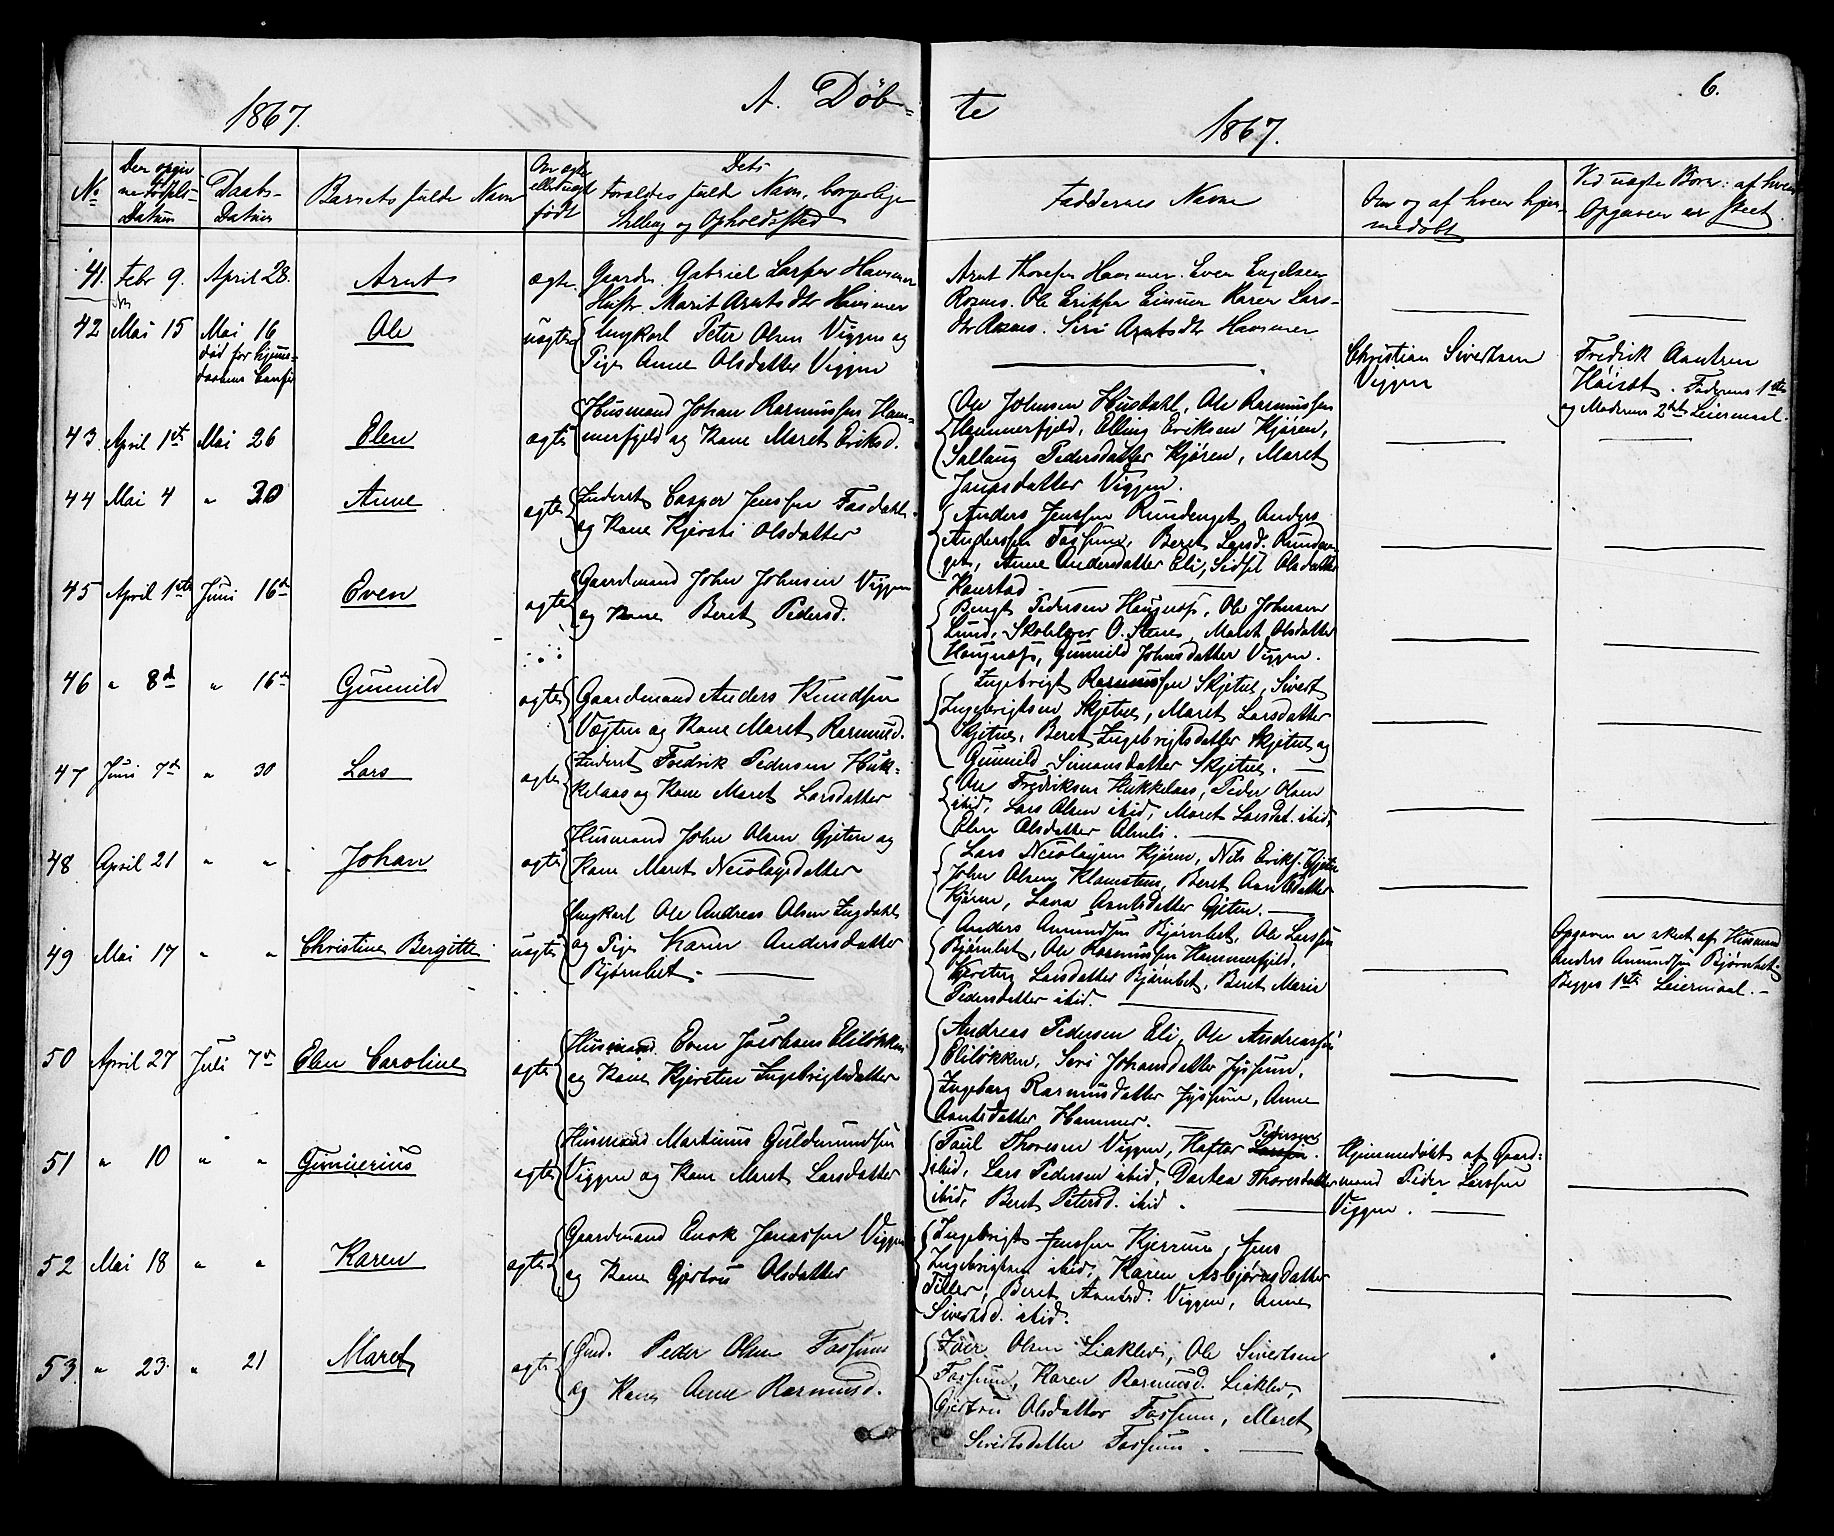 1867. A. Døb-
te 1867. 6.
No Den opgiv-
ne Fødsels-
Datum
Daabs-
Datum
Barnets fulde Navn
Om ægte
eller uægte
født
Dets
Forældres fulde Navn, borgerlige
Stilling og Opholdssted
Faddernes Navne
Om og af hvem hjem-
medøbt
Ved uægte Børn: af hvem
Opgaven er skeet.
41. Febr 9. April 28. Arnt ægte
Gaardm. Gabriel Larsen Hammer
Hustr. Marit Arntsdtr Hammer
Arnt Thoresen Hammer. Even Engelsen
Roxnes. Ole Eriksen Karen Lars-
dtr Siri Arntsdtr Hammer
42 Mai 15 Mai 16
død før Hjemme-
daabens
Ole uægte
Ungkarl Peter Olsen Viggen og
Pige Anne Olsdatter Viggen
Christian Sivertsen
Viggen
Fredrik Arntsen
Faderens 1ste
og Moderens 2det Leiermaal.
43. April 1ste Mai 26 Elen ægte
Husmand Johan Rasmussen Ham-
merfjeld og Kone Maret Eriksd.
Ole Johnsen Husdahl, Ole Rasmussen
Hammerfjeld, Elling Eriksen Kjøren,
Sallaug Pedersdatter Kjøren, Maret
Jonasdatter Viggen.
44 Mai 4 " 30 Anne ægte
Inderst Casper Jenssen Fosdahl
og Kone Kjersti Olsdatter
Anders Jenssen Anders
Anderssen Fossum, Beret Larsd.
Anne Andersdatter Eli, Olsdatter
45 April 1ste Juni 16de Even ægte
Gaardmand John Johnsen Viggen
og Kone Beret Pedersd.
Bengt Pedersen Haugnæss, Ole Johnsen
Lund, Skolelærer O. Stene, Maret Olsdatter
Haugnæss, Gunnild Johnsdatter Viggen.
46 " 8de " 16de Gunnild ægte
Gaardmand Anders Knudsen
Vægten og Kone Maret Rasmusd.
Ingebrigt Rasmussen Skjetne, Sivert
Ingebrigtsen Skjetne, Maret Larsdatter
Skjetne, Beret Ingebrigtsdatter Skjetne og
Gunnild Simonsdatter Skjetne.
47 Juni 7de " 30 Lars ægte
Inderst Fredrik Pedersen Huk-
kelaas og Kone Maret Larsdatter
Ole Fredriksen Hukkelaas, Peder Olsen
ibid, Lars Olsen ibid, Maret Larsdat. ibid,
Elen Olsdatter Almli.
48 April 21 " " Johan ægte
Husmand John Olsen Gjeten og
Kone Maret Nicolaysdatter
Lars Nicolaysen Kjøren, Nils Erikss. Gjeten
John Olsen Klemsteen, Beret Arntsdatter
Kjøren, Lava Arntsdatter Gjeten.
49 Mai 17 " " Christine Bergitte uægte
Ungkarl Ole Andreas Olsen Ingdahl
og Pige Karen Andersdatter
Bjørnbet.
Anders Amundsen Bjørnbet, Ole Larssen
Bjørnbet, Ole Rasmussen Hammerfjeld,
Larsdatter Bjørnbet, Beret Marie
Pedersdatter ibid.
Opgaven er skeet af Husmand
Anders Amundsen Bjørnbet
Begges 1ste Leiermaal.
50 April 27 Juli 7de Elen Caroline ægte
Husmand Even Jacobsen Eliløkken
og Kone Kjersten Ingebrigtsdatter
Andreas Pedersen Eli, Ole Andreassen
Eliløkken, Seri Johansdatter Jyssum,
Ingeborg Rasmusdatter Jyssum, Anne
Arntsdatter Hammer.
51 " 10 " " ægte
Husmand Martinus Guldmundsen
Viggen og Kone Maret Larsdatter
Paul Thoresen Viggen, Haftor Larssen Pedersen
ibid, Lars Pedersen ibid, Dortea Thoresdatter
ibid, Beret Petersd. ibid.
Hjemmedøbt af Gaard-
mand Peder Larssen
Viggen.
52 Mai 18 " " Karen ægte
Gaardmand Enok Jonassen Viggen
og Kone Gjertru Olsdatter
Ingebrigt Jenssen Kjerrum, Jens
Ingebrigtsen ibid, Karen Asbjørnsdatter
Tiller, Beret Arntsd. Viggen, Anne
Sivertsd. ibid.
53 " 23. " 21 Maret ægte
Gmd. Peder Olsen Fossum
og Kone Anne Rasmusd.
Olsen Liaklev, Ole Sivertsen
Fossum, Karen Rasmusd. Liaklev,
Gjertru Olsdatter Fossum, Maret
Sivertsdatter Fossum.